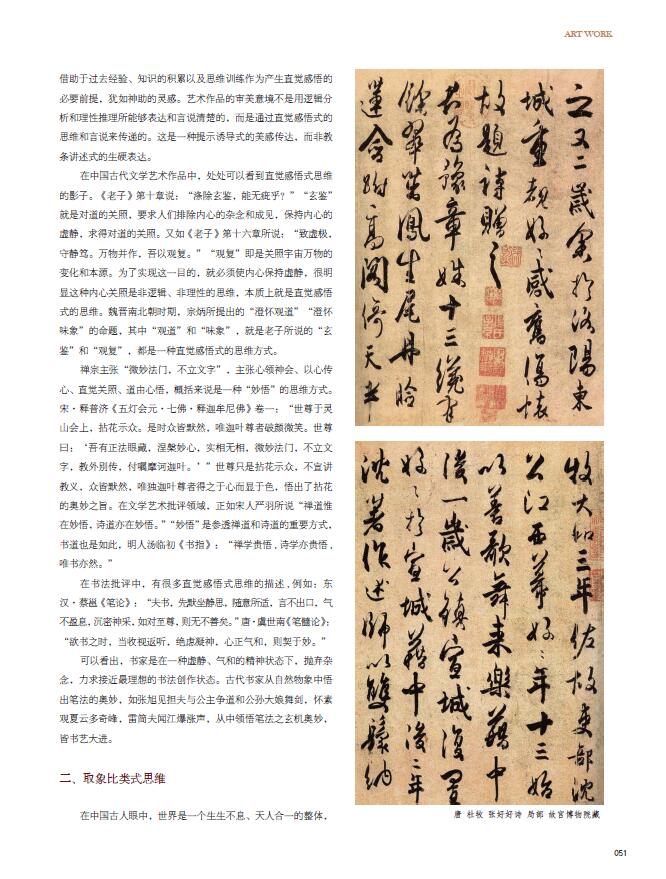 ART WORK
借助于过去经验、知识的积累以及思维训练作为产生直觉感悟的
必要前提，犹如神助的灵感。艺术作品的审美意境不是用逻辑分
析和理性推理所能够表达和言说清楚的，而是通过直觉感悟式的
思维和言说来传递的。这是一种提示诱导式的美感传达，而非教
条讲述式的生硬表达。
在中国古代文学艺术作品中，处处可以看到直觉感悟式思维
的影子。《老子》第十章说：“涤除玄鉴，能无疵乎？”“玄鉴”
就是对道的关照，要求人们排除内心的杂念和成见，保持内心的
虚静，求得对道的关照。又如《老子》第十六章所说：“致虚极，
守静笃。万物并作，吾以观复。”“观复”即是关照宇宙万物的
变化和本源。为了实现这一目的，就必须使内心保持虚静，很明
显这种内心关照是非逻辑、非理性的思维，本质上就是直觉感悟
式的思维。魏晋南北朝时期，宗炳所提出的“澄怀观道”“澄怀
味象”的命题，其中“观道”和“味象”，就是老子所说的“玄
鉴”和“观复”，都是一种直觉感悟式的思维方式。
禅宗主张“微妙法门，不立文字”，主张心领神会、以心传
心、直觉关照、道由心悟，概括来说是一种“妙悟”的思维方式。
宋·释普济《五灯会元·七佛·释迦牟尼佛》卷一：“世尊于灵
山会上，拈花示众。是时众皆默然，唯迦叶尊者破颜微笑。世尊
曰：‘吾有正法眼藏，涅槃妙心，实相无相，微妙法门，不立文
字，教外别传，付嘱摩诃迦叶。’”世尊只是拈花示众，不宣讲
教义，众皆默然，唯独迦叶尊者得之于心而显于色，悟出了拈花
的奥妙之旨。在文学艺术批评领域，正如宋人严羽所说“禅道惟
在妙悟，诗道亦在妙悟。”“妙悟”是参透禅道和诗道的重要方式，
书道也是如此，明人汤临初《书指》：“禅学贵悟，诗学亦贵悟，
唯书亦然。”
在书法批评中，有很多直觉感悟式思维的描述，例如：东
汉·蔡邕《笔论》：“夫书，先默坐静思，随意所适，言不出口，气
不盈息，沉密神采，如对至尊，则无不善矣。”唐·虞世南《笔髓论》：
“欲书之时，当收视返听，绝虑凝神，心正气和，则契于妙。”
可以看出，书家是在一种虚静、气和的精神状态下，抛弃杂
念，力求接近最理想的书法创作状态。古代书家从自然物象中悟
出笔法的奥妙，如张旭见担夫与公主争道和公孙大娘舞剑，怀素
观夏云多奇峰，雷简夫闻江爆涨声，从中领悟笔法之玄机奥妙，
皆书艺大进。
二、取象比类式思维
在中国古人眼中，世界是一个生生不息、天人合一的整体，
之又二歲余於洛陽東
城重覩好好感舊傷懷
故題詩贈之
君為豫章姝十三纔有
餘翠茁鳳生尾丹臉
蓮含跗高閣倚天半
牧大和三年佐故吏部沈
公江西幕好好年十三始
以善歌舞來樂籍中
後一歲公鎮宣城復置
好好於宣城籍中後二年
沈著作述師以雙鬟納
唐 杜牧 张好好诗 局部 故宫博物院藏
051